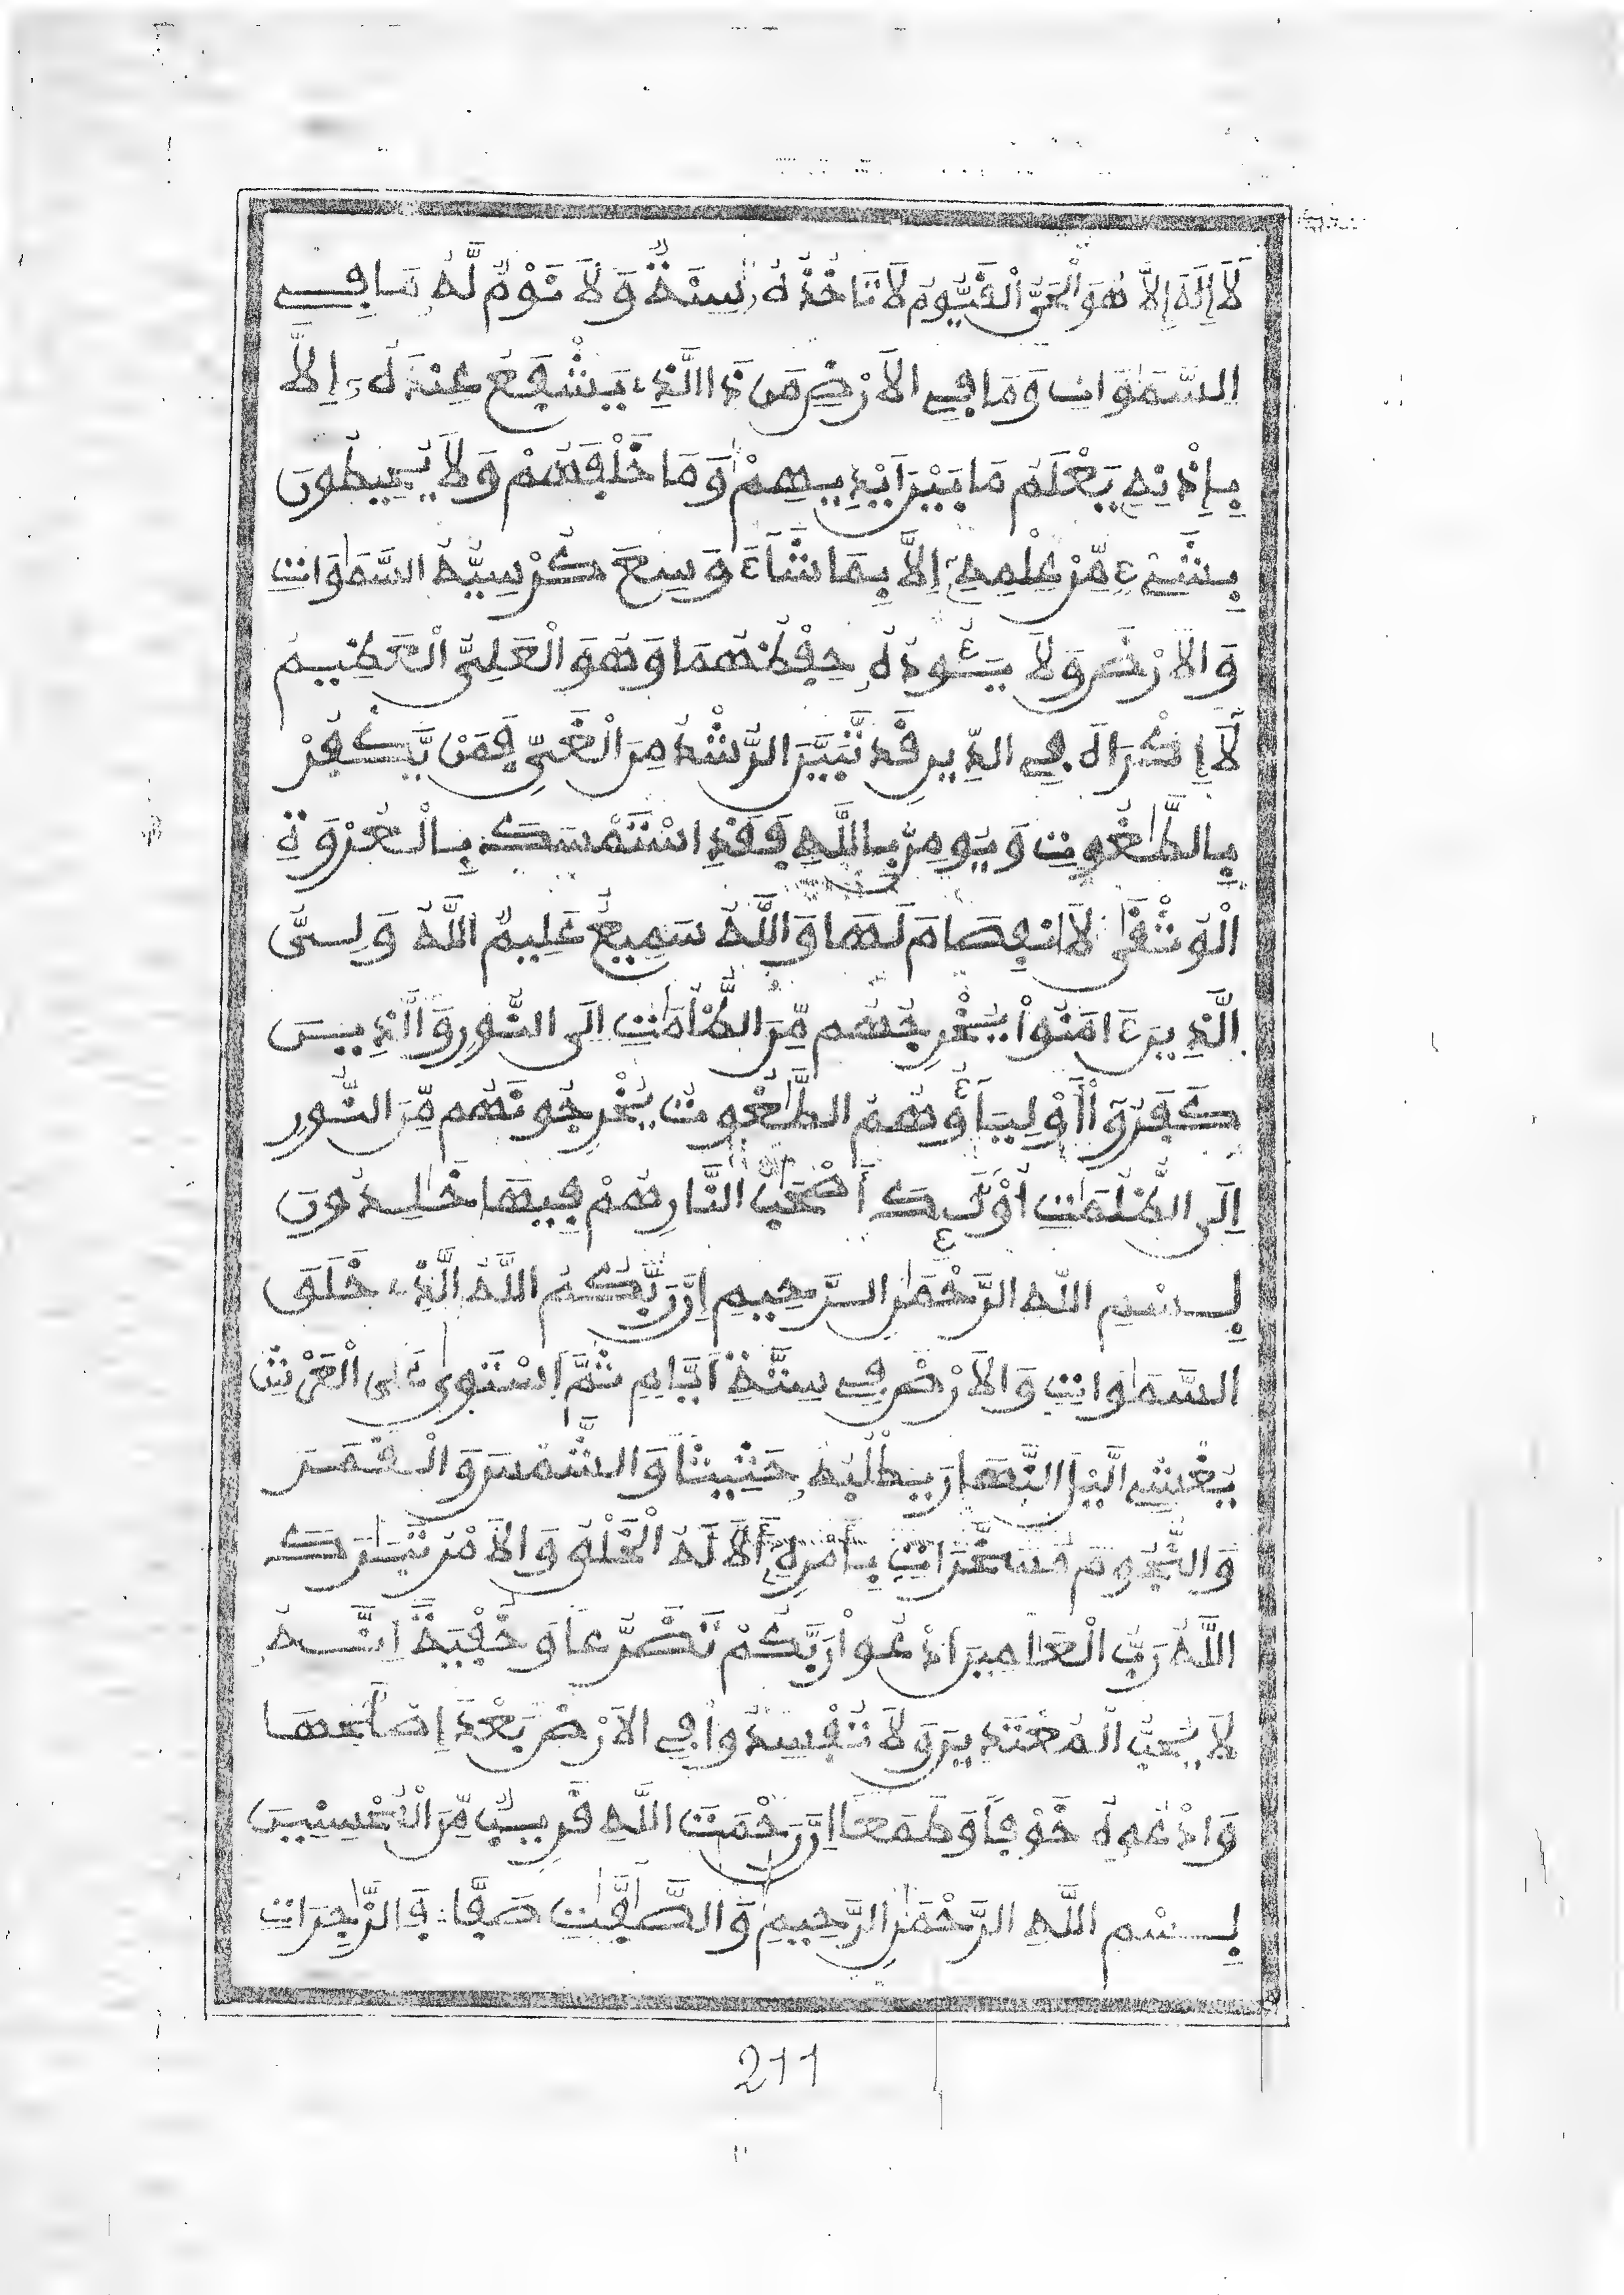 لَآ إِلَٰهَ إِلَّا هُوَ الْحَيُّ الْقَيُّومُ لَا تَاخُذُهُۥ سِنَةٌ وَلَا نَوْمٌ لَّهُۥ مَا فِے
السَّمَٰوَاتِ وَمَا فِے الَارْضِ مَن ذَا الَّذِے يَشْفَعُ عِندَهُۥٓ إِلَّا
بِإِذْنِهِۦ يَعْلَمُ مَا بَيْنَ أَيْدِيهِمْ وَمَا خَلْفَهُمْ وَلَا يُحِيطُونَ
بِشَےْءٍ مِّنْ عِلْمِهِۦٓ إِلَّا بِمَا شَآءَ وَسِعَ كُرْسِيُّهُ السَّمَٰوَاتِ
وَالَارْضَ وَلَا يَـُٔودُهُۥ حِفْظُهُمَا وَهُوَ الْعَلِيُّ الْعَظِيمُ
لَآ إِكْرَاهَ فِے الدِّينِ قَد تَّبَيَّنَ الرُّشْدُ مِنَ الْغَيِّ فَمَنْ يَّكْفُرْ
بِالطَّٰغُوتِ وَيُومِنۢ بِاللَّهِ فَقَدِ اسْتَمْسَكَ بِالْعُرْوَةِ
الْوُثْقَىٰ لَا انفِصَامَ لَهَا وَاللَّهُ سَمِيعٌ عَلِيمٌ اللَّهُ وَلِيُّ
الَّذِينَ ءَامَنُواْ يُخْرِجُهُم مِّنَ الظُّلُمَٰتِ إِلَى النُّورِ وَالَّذِينَ
كَفَرُوٓاْ أَوْلِيَآؤُهُمُ الطَّٰغُوتُ يُخْرِجُونَهُم مِّنَ النُّورِ
إِلَى الظُّلُمَٰتِ أُوْلَٰٓئِكَ أَصْحَٰبُ النَّارِ هُمْ فِيهَا خَٰلِدُونَ
بِسْمِ اللَّهِ الرَّحْمَٰنِ الرَّحِيمِ إِنَّ رَبَّكُمُ اللَّهُ الَّذِے خَلَقَ
السَّمَٰوَاتِ وَالَارْضَ فِے سِتَّةِ أَيَّامٍ ثُمَّ اَسْتَوىٰ عَلَى الْعَرْشِ
يُغْشِے الَّيْلَ النَّهَارَ يَطْلُبُهُۥ حَثِيثًا وَالشَّمْسَ وَالْقَمَرَ
وَالنُّجُومَ مُسَخَّرَاتٍۢ بِأَمْرِهِۦٓ أَلَا لَهُ الْخَلْقُ وَالَامْرُ تَبَٰرَكَ
اللَّهُ رَبُّ الْعَٰلَمِينَ ادْعُواْ رَبَّكُمْ تَضَرُّعًا وَخُفْيَةً إِنَّهُۥ
لَا يُحِبُّ الْمُعْتَدِينَ وَلَا تُفْسِدُواْ فِے الَارْضِ بَعْدَ إِصْلَٰحِهَا
وَادْعُوهُ خَوْفًا وَطَمَعًا إِنَّ رَحْمَتَ اللَّهِ قَرِيبٌ مِّنَ الْمُحْسِنِينَ
بِسْمِ اللَّهِ الرَّحْمَٰنِ الرَّحِيمِ وَالصَّٰٓفَّٰتِ صَفًّا فَالزَّٰجِرَاتِ
211